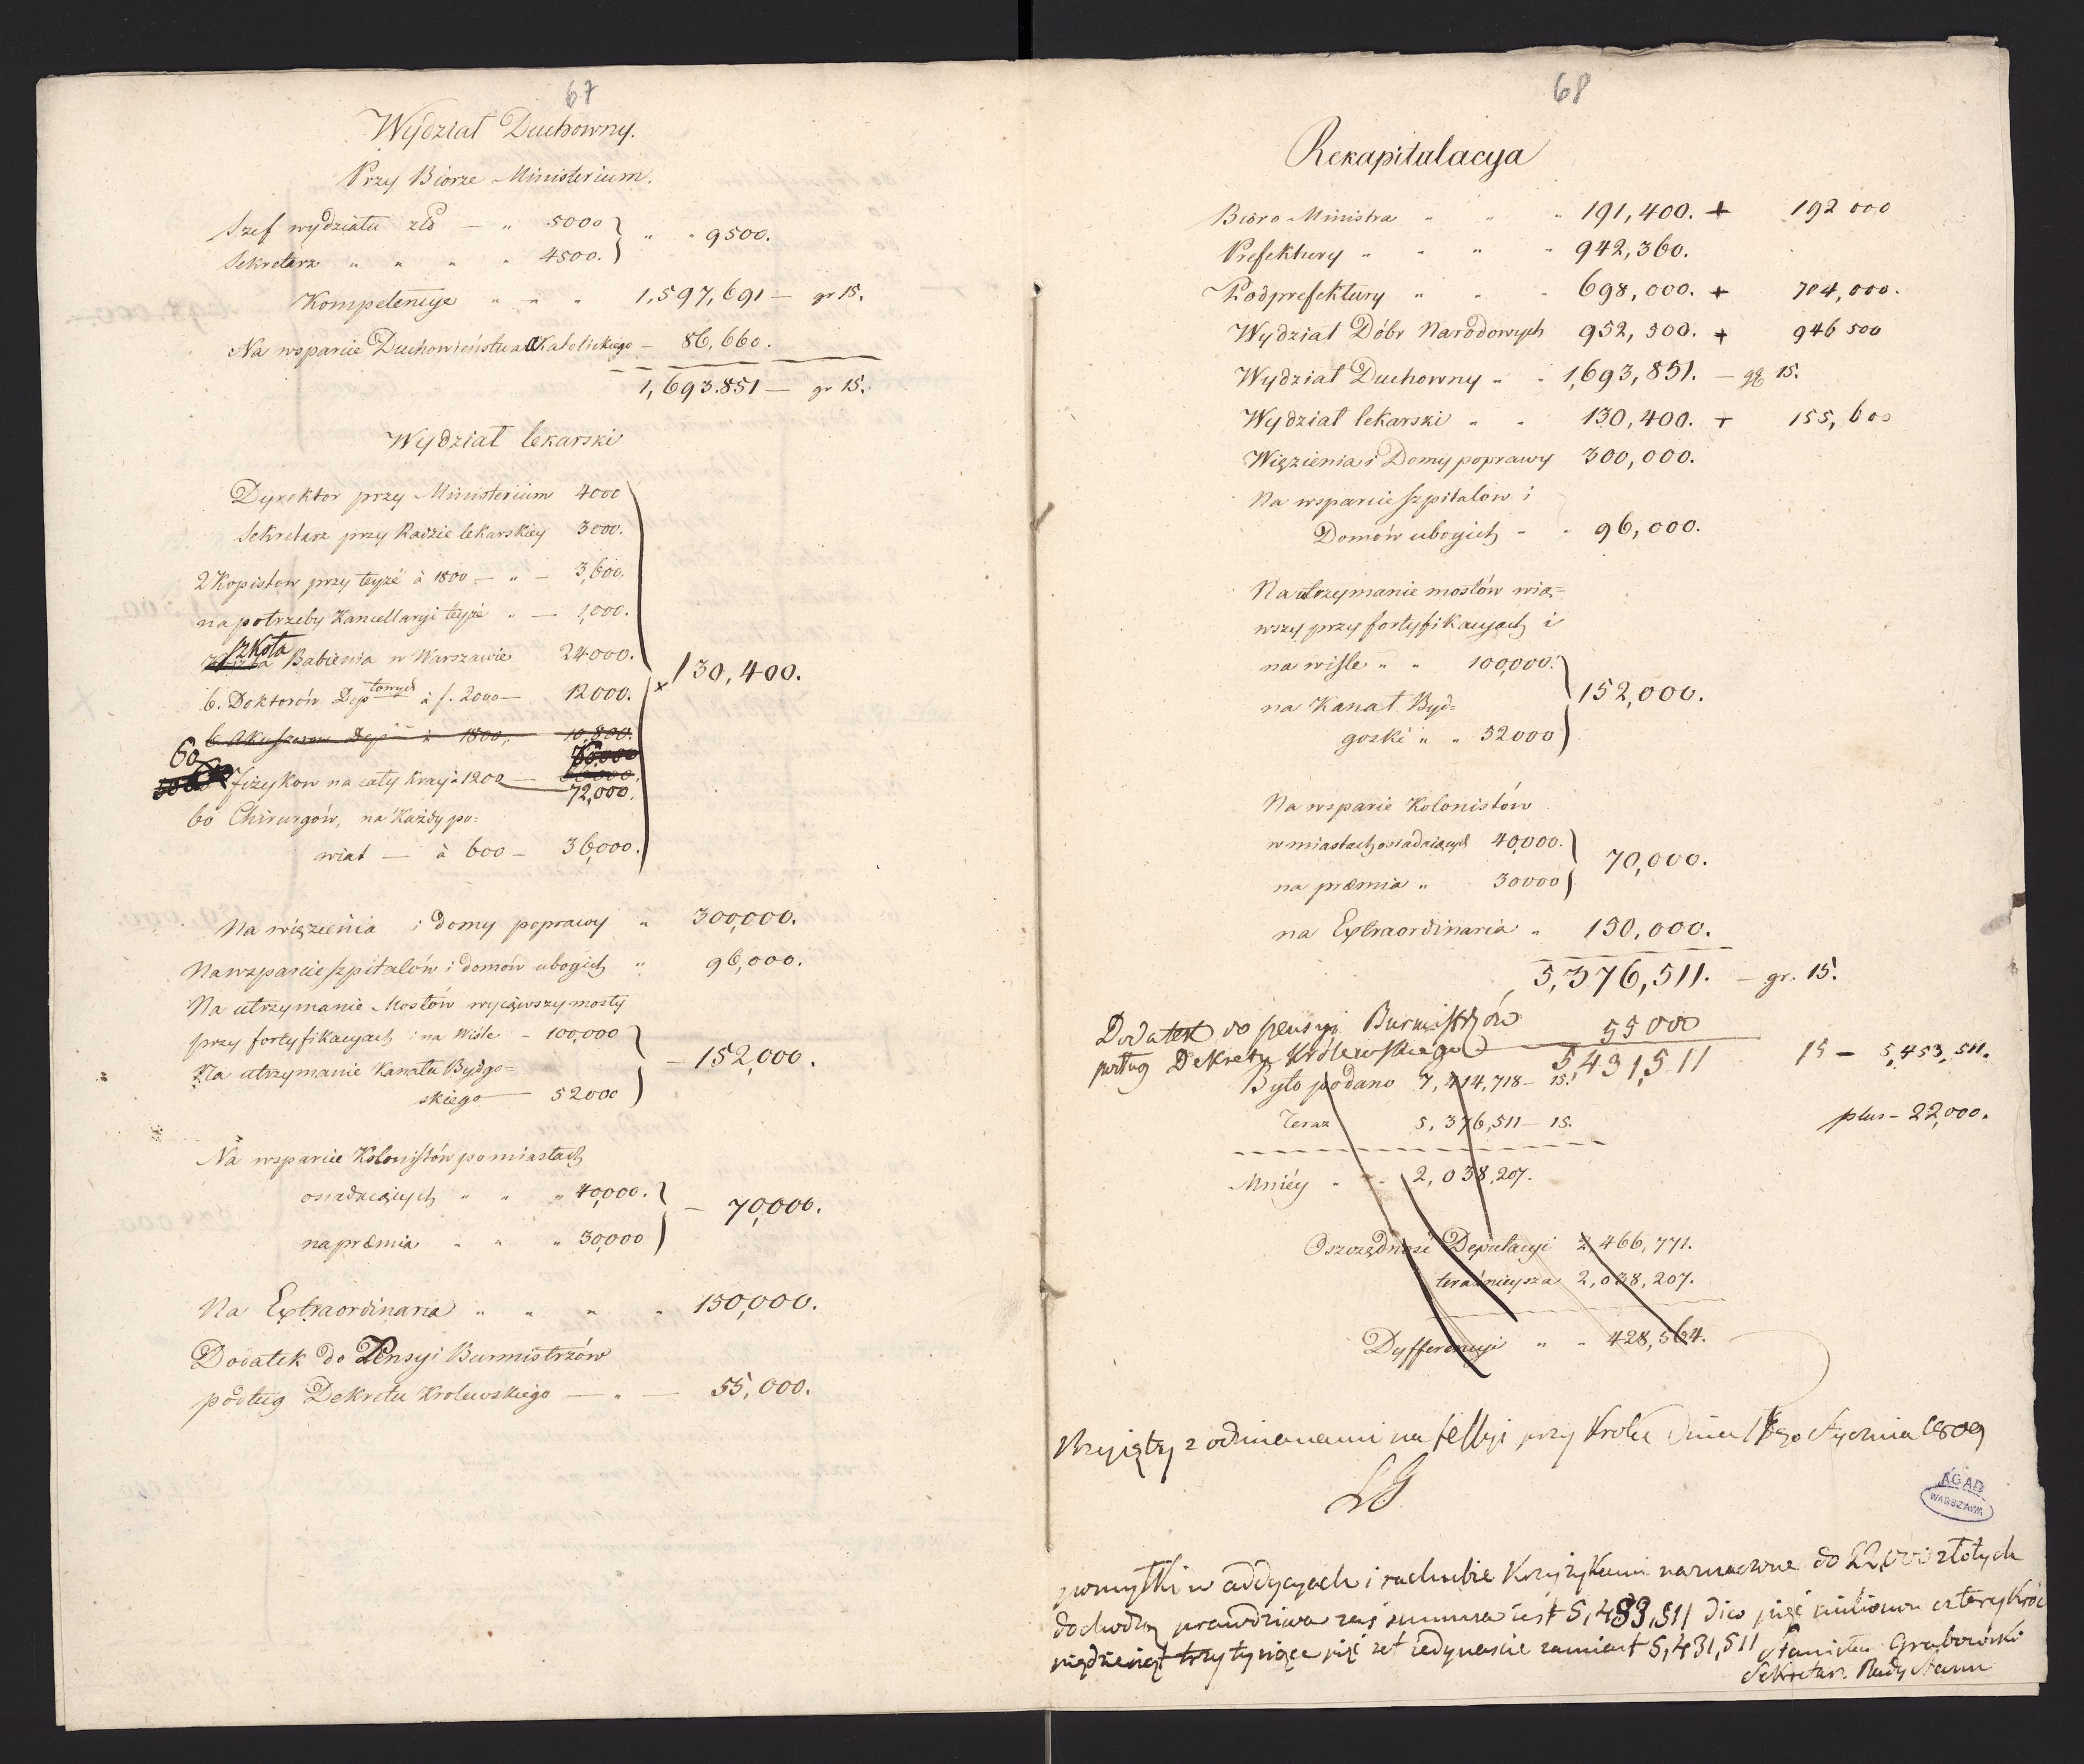 67
Wydział Duchowny.
Przy Biorze Ministerium.
Szef wydziału zł — " 5000
Sekretarz " " " " 4500. " " 9500.
Kompetencye " " " 1,597,691 — gr 15.
Na wsparcie Duchowieństwa Katolickiego — 86,660.
1,693.851 — gr 15.
Wydział lekarski
Dyrektor przy Ministerium 4000
Sekretarz przy Radzie lekarskiey 3000.
2 Kopistow przy teyże à 1800 — " — 3,600.
na potrzeby Kancellaryi teyże " — 1,000.
szkoła Babienia w Warszawie 24000.
130,400.
6. Doktorów Deptowych à f. 2000 — 12000. x
6 Akuszerow Dep à 1800, 10,800.
60 fizykow na cały kray à 1200 — 72,000.
60 Chirurgów, na każdy po=
wiat — à 600 — 36,000.
Na więzienia i domy poprawy " 300,000.
Na wzparcie szpitalów i domów ubogich " 96,000.
Na utrzymanie Mostów wyiąwszy mosty
przy fortyfikacyach i na Wiśle - 100,000
Na utrzymanie Kanału Bydgo= — 152,000.
skiego — 52000
Na wsparcie Kolonistów po miastach
osiadaiących " " " 40,000.
— 70,000.
na præmia " " " 30,000
Na Extraordinaria " " " " 150,000.
Dodatek do Pensyi Burmistrzów
podług Dekretu Krolewskiego — " — 55,000.
68
Rekapitulacya
Bióro Ministra " " " 191,400. + 192 000
Prefektury " " " " 942,360.
Podprefektury " " " 698,000. + 704,000.
Wydział Dóbr Narodowych 952,500. + 946 500
Wydział Duchowny " " 1,693,851. — gr 15.
Wydział lekarski " " 130,400. + 155,600
Więzienia i Domy poprawy 300,000.
Na wsparcie szpitalow i
Domów ubogich " " 96,000.
Na utrzymanie mostów wią=
wszy przy fortyfikacyach i
na wisle " " 100,000.
152,000.
na Kanał Byd=
goski " " 52000
Na wsparcie Kolonistów
w miastach osiadaiących 40,000.
70,000.
na præmia " 30000
na Extraordinaria " 150,000.
5,376,511. — gr. 15.
Dodatek do pensyi Burmistrzów 55000
podług Dekretu Królewskiego — 5,431,511 15 — 5,453,511.
Było podano 7,414,718 — 15.
Teraz 5,376,511 — 15. plus - 22,000.
Mniéy " " 2,038,207.
Oszczędność Deputacyi 2,466,771.
teraźnieysza 2,038,207.
Dyfferencyi " " 428,564.
Przyięty z odmianami na sessyi przy Krolu Dnia Stycznia 1809
SG
AGAD
WARSZAWA
pomyłki w addycyach i rachubie krzyżykami naznaczone do 22,000 złotych
dochodzą prawdziwa zaś summa iest 5,453,511 dico pięć milionow czterykroć
pięćdziesiąt trzy tysiące pięć set iedynaście zamiast 5,431,511 Stanisław Grabowski
Sekretarz Rady Stanu